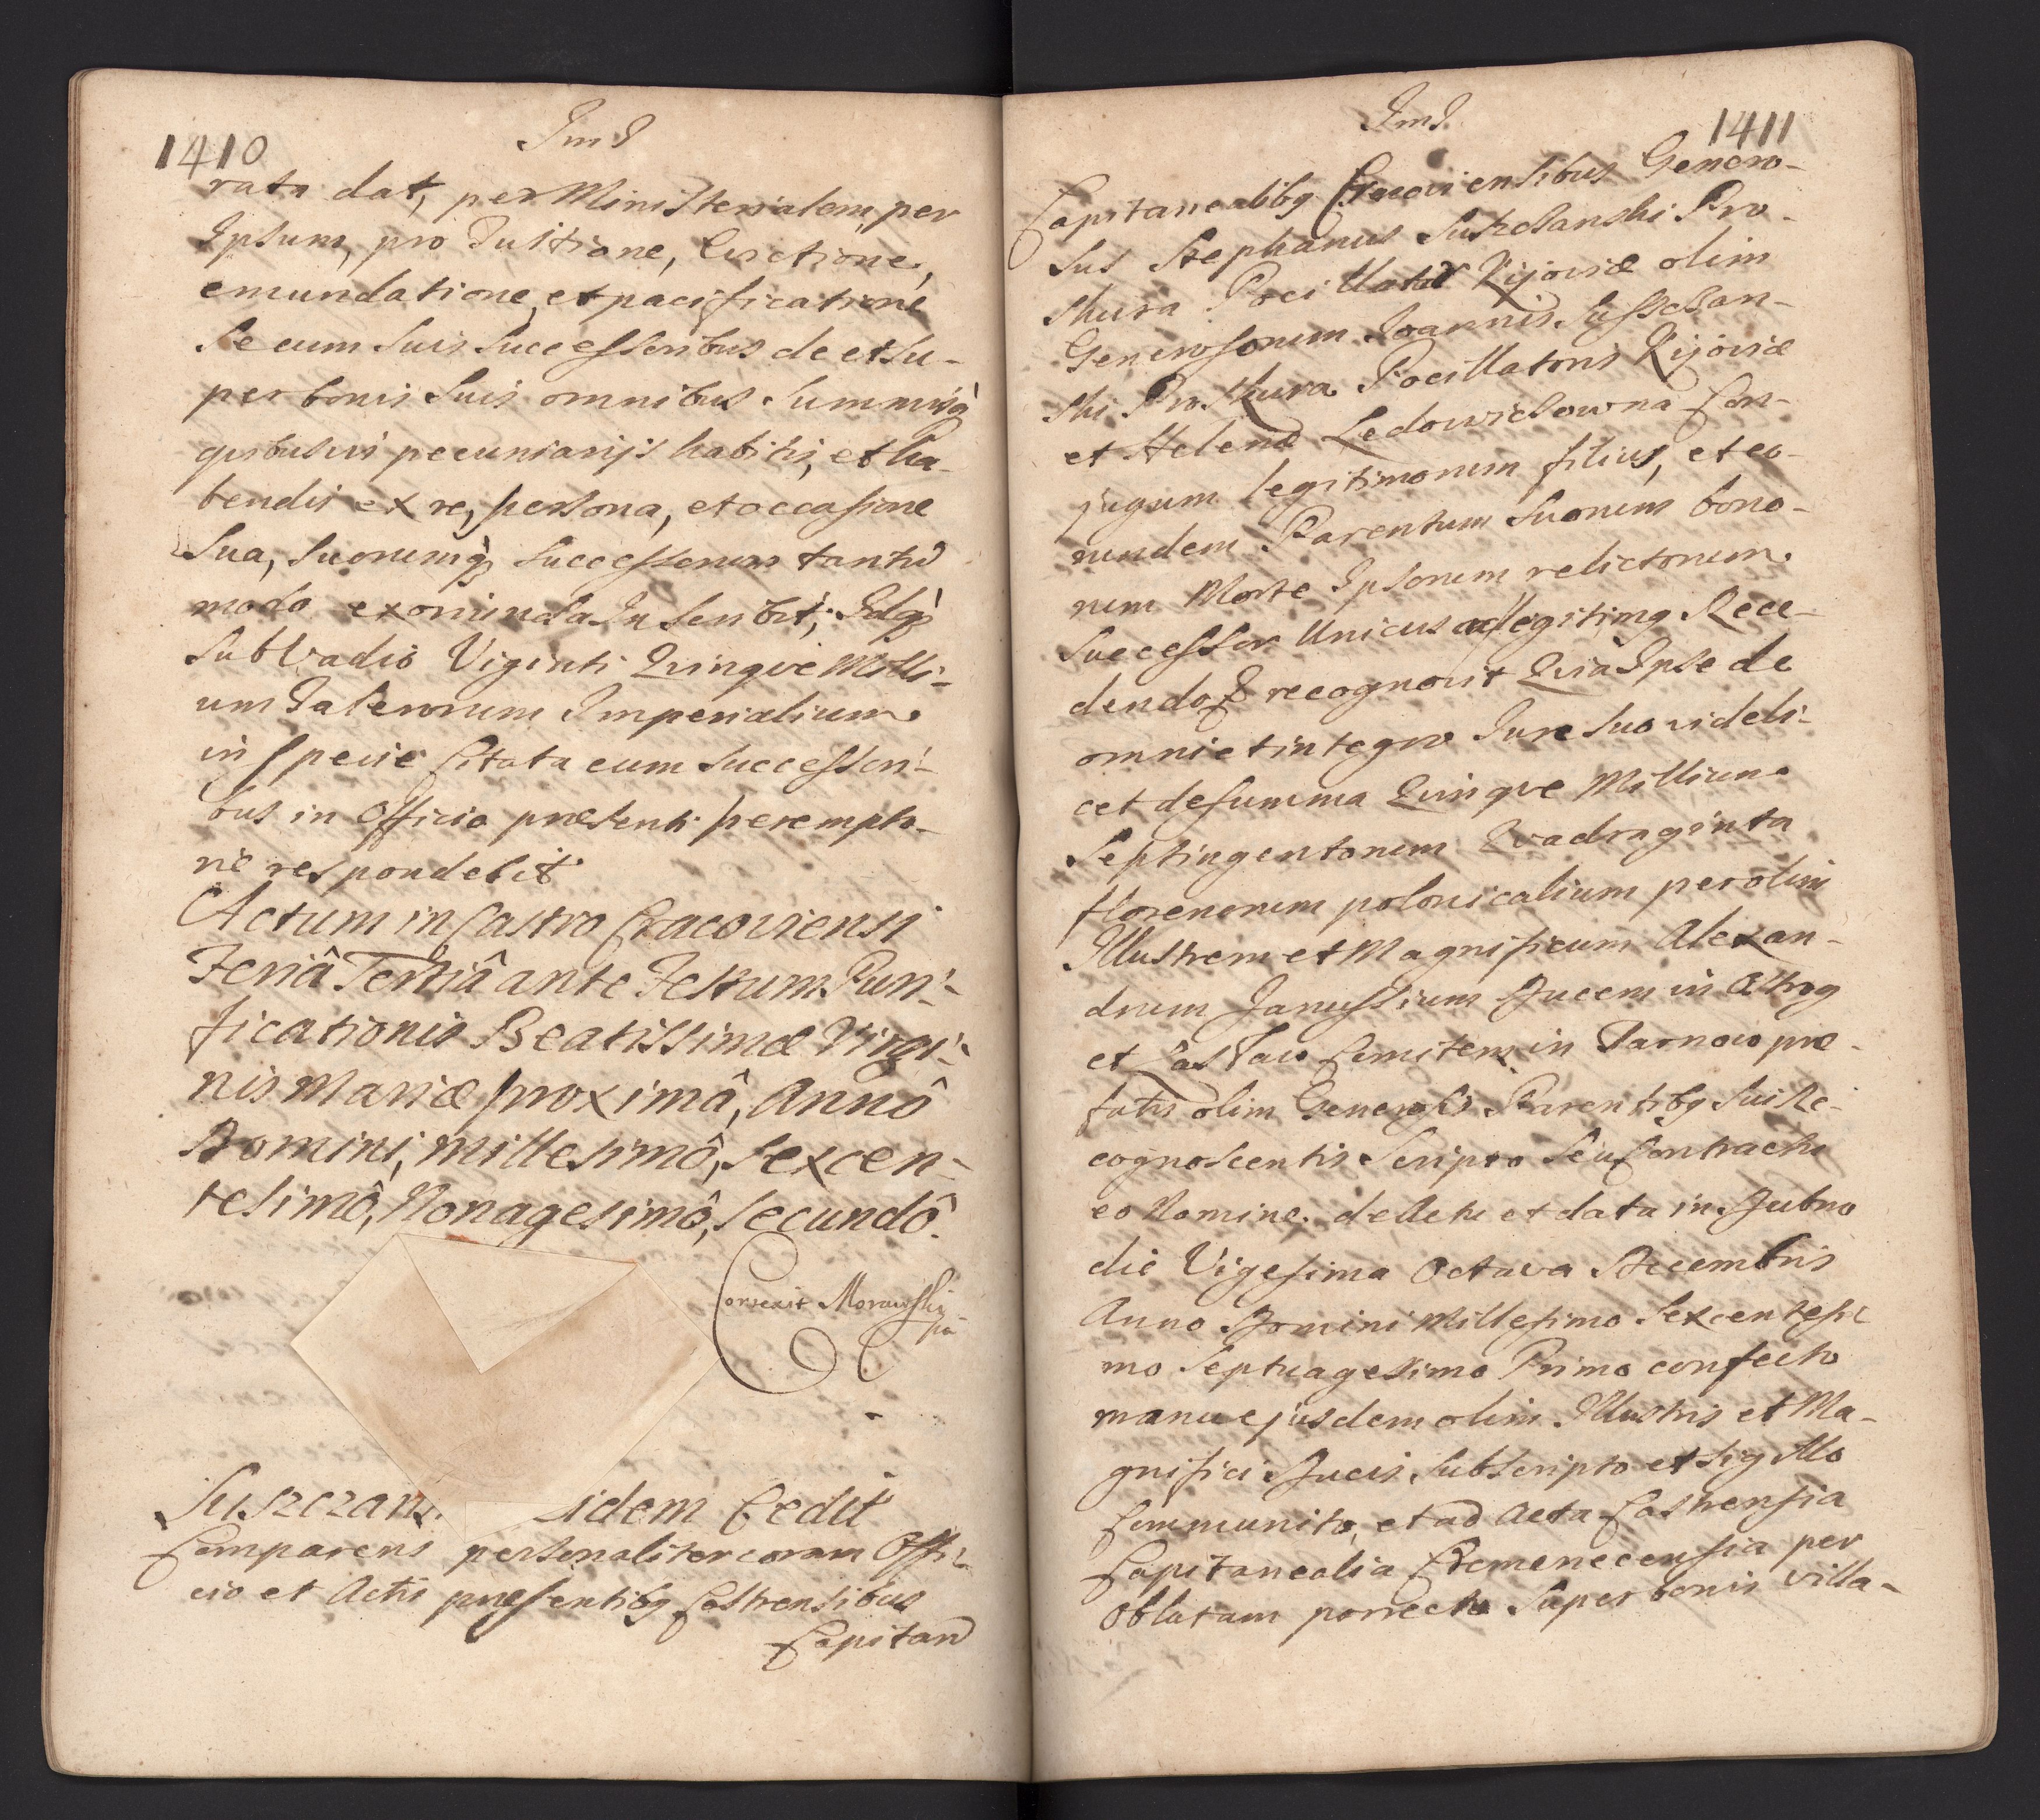 1410
Ind
rata dat, per Ministerialem, per
Ipsum, pro Tuitione, Evictione,
emundatione, et pacificatione
Se cum Suis Successoribus de et Su-
per bonis Suis omnibus Summisq́
quibusvis pecuniarijs habitis, et ha-
bendis ex re, persona, et occasione
Sua, Suorumq́ Successorum tantū
modo
Inscribit; Idq́
Sub Vadio Viginti Quinque Milli-
um Talerorum Imperialium
in specie Citata cum Successori-
bus in Officio præsenti perempto-
rie respondebit
Actum in Castro Cracoviensi
Feriâ Tertiâ ante Festum Puri-
ficationis Beatissimæ Virgi-
nis Mariæ proximâ, Annô
Domini, millesimô, Sexcen-
tesimô, Nonagesimô, Secundô.
Correxit Morawsky
Suszczans. idem Cedit
Comparens personaliter coram Offi-
cio et Actis præsentibq Castrensibus
Capitan
Ind.
1411
Capitanealibq Cracoviensibus Genero-
sus Stephanus Suszczanski Pro-
skura Pocillator Kijoviæ olim
Generosorum Joannis Suszczan-
ski Proskura Pocillatoris Kijoviæ
et Helenæ Ledowiczowna Con-
jugum legitimorum filius, et eo-
rundem Parentum Suorum bono-
rum Morte Ipsorum relictorum
Successor Unicus ac legitimq Rece-
dendo recognovit Quia Ipse de
omni et integro Jure Suo videli-
cet de summa Quinque Millium
Septingentorum Quadraginta
florenorum polonicalium per olim
Illustrem et Magnificum Alexan-
drum Janussium Ducem in Ostrog
et Zaslaw Comitem in Tarnow præ-
fatis olim Generosis Parentibq Sui Re-
cognoscentis Scripto Seu Contractu
eo Nomine. et data in Dubno
die Vigesima Octava Decembris
Anno Domini Millesimo Sexcentesi-
mo Septuagesimo Primo confecto
manu ejusdem olim Illustris et Ma-
gnifici Ducis Subscripto et Sigillo
Communito, et ad Acta Castrensia
Capitanealia Cremenecensia per
Oblatam porrecto Super bonis Villa-